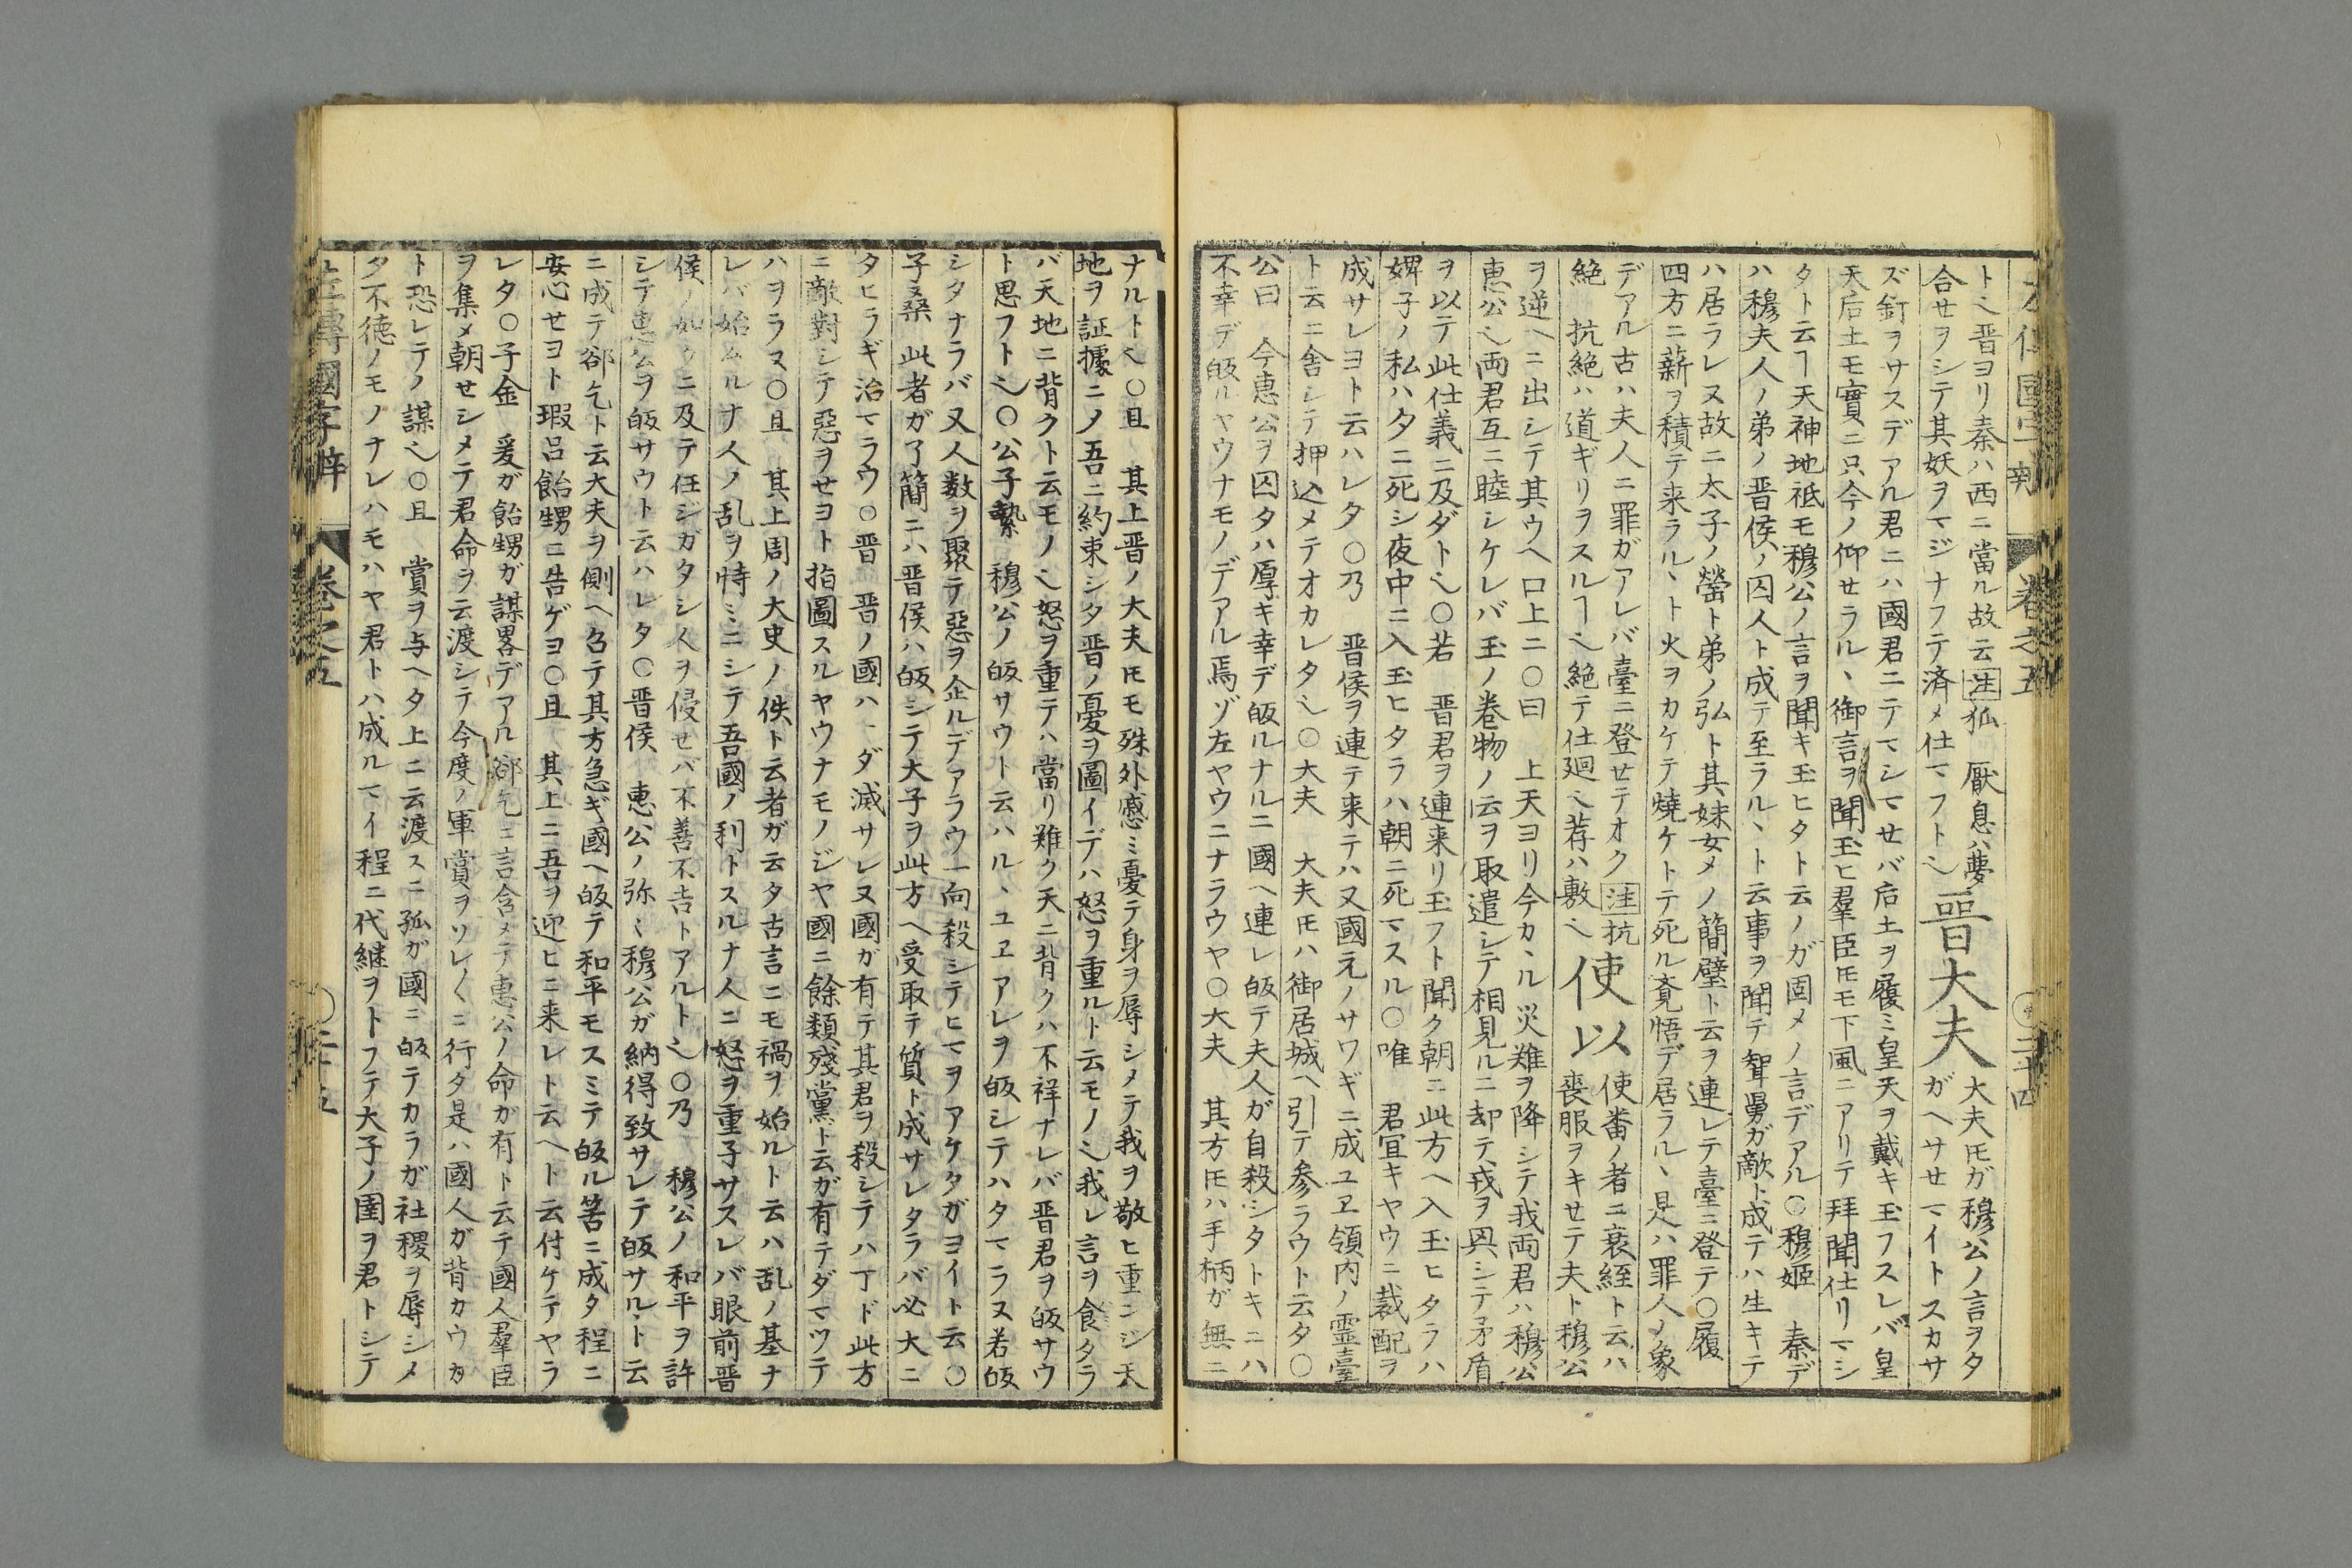 トヘ晋ヨリ秦ハ西ニ當ル故云注狐　厭息ハ夢
合セヲシテ其妖ヲマジナフテ済メ仕マフトヘ
晋大夫
大夫㠪ガ穆公ノ言ヲタ
ガヘサセマイトスカサ
ズ釘ヲサスデアル君ニハ國君ニテマシマセバ后土ヲ履ミ皇天ヲ戴キ玉フスレバ皇
天后土モ實ニ只今ノ仰セラルヽ御言ヲ聞玉ヒ羣臣㠪モ下風ニアリテ拜聞仕リマシ
タト云ヿ天神地祗モ穆公ノ言ヲ聞キ玉ヒタト云ノガ固メノ言デアル〇穆姬　秦デ
ハ穆夫人ノ弟ノ晋侯ノ囚人ト成テ至ラルヽト云事ヲ聞テ聟舅ガ敵ト成テハ生キテ
ハ居ラレヌ故ニ太子ノ罃ト弟ノ弘ト其妹女メノ簡璧ト云ヲ連レテ臺ニ登テ〇履
四方ニ薪ヲ積テ来ラルヽト火ヲカケテ燒ケトテ死ル覚悟デ居ラルヽ是ハ罪人ノ象
デアル古ハ夫人ニ罪ガアレバ臺ニ登セテオク注抗
絶　抗絶ハ道ギリヲスルヿヘ絶テ仕廻ヘ荐ハ敷ヘ
使以
使番ノ者ニ衰絰ト云ハ
喪服ヲキセテ夫ト穆公
ヲ逆ヘニ出シテ其ウヘ口上ニ〇曰　上天ヨリ今カヽル災難ヲ降シテ我両君ハ穆公
惠公ヘ両君互ニ睦シケレバ玉ノ巻物ノ云ヲ取遣シテ相見ルニ却テ戎ヲ興シテ矛盾
ヲ以テ此仕義ニ及ダトヘ〇若　晋君ヲ連来リ玉フト聞ク朝ニ此方ヘ入玉ヒタラハ
婢子ノ私ハタニ死シ夜中ニ入玉ヒタラハ朝ニ死マスル〇唯　君冝キヤウニ裁配ヲ
成サレヨト云ハレタ〇乃　晋侯ヲ連テ来テハ又國元ノサワギニ成ユヱ領内ノ霊臺
ト云ニ舎シテ押込メテオカレタヘ〇大夫　大夫㠪ハ御居城ヘ引テ参ラウト云タ〇
公曰　今惠公ヲ囚タハ厚キ幸デ皈ルナルニ國ヘ連レ皈テ夫人ガ自殺シタトキニハ
不幸デ皈ルヤウナモノデアル焉ゾ左ヤウニナラウヤ〇大夫　其方㠪ハ手柄ガ無ニ
ナルトヘ〇且　其上晋ノ大夫㠪モ殊外慼ミ憂テ身ヲ辱シメテ我ヲ敬ヒ重ンジ天
地ヲ証據ニノ吾ニ約束シタ晋ノ憂ヲ圖イデハ怒ヲ重ルト云モノヘ我レ言ヲ食タラ
バ天地ニ背クト云モノヘ怒ヲ重テハ當リ難ク天ニ背クハ不祥ナレバ晋君ヲ皈サウ
ト思フトヘ〇公子縶　穆公ノ皈サウト云ハルヽユヱアレヲ皈シテハタマラヌ若皈
シタナラバ又人数ヲ聚テ惡ヲ企ルデアラウ一向殺シテヒマヲアケタガヨイト云〇
子桑　此者ガ了簡ニハ晋侯ハ皈シテ大子ヲ此方ヘ受取テ質ト成サレタラバ必大ニ
タヒラギ治マラウ〇晋　晋ノ國ハマダ滅サレヌ國ガ有テ其君ヲ殺シテハ丁ド此方
ニ敵對シテ惡ヲセヨト指圖スルヤウナモノジヤ國ニ餘類殘黨ト云ガ有テダマツテ
ハヲラヌ〇且　其上周ノ大史ノ佚ト云者ガ云タ古言ニモ禍ヲ始ルト云ハ乱ノ基ナ
レバ始ムルナ人ノ乱ヲ恃ミニシテ吾國ノ利トスルナ人ニ怒ヲ重子サスレバ眼前晋
侯ノ如クニ及テ任ジガタシ人ヲ侵セバ不善不吉トアルトヘ〇乃　穆公ノ和平ヲ許
シテ惠公ヲ皈サウト云ハレタ〇晋侯　惠公ノ弥ミ穆公ガ納得致サレテ皈サルヽト云
ニ成テ郤乞ト云大夫ヲ側ヘ召テ其方急ギ國ヘ皈テ和平モスミテ皈ル筈ニ成タ程ニ
安心セヨト瑕呂飴甥ニ告ゲヨ〇且　其上ニ吾ヲ迎ヒニ来レト云ヘト云付ケテヤラ
レタ〇子金　爰ガ飴甥ガ謀畧デアル郤乞ニ言含メテ惠公ノ命ガ有ト云テ國人羣臣
ヲ集メ朝セシメテ君命ヲ云渡シテ今度ノ軍賞ヲソレ〱ニ行タ是ハ國人ガ背カウカ
ト恐レテノ謀ヘ〇且　賞ヲ与ヘタ上ニ云渡スニ孤ガ國ニ皈テカラガ社稷ヲ辱シメ
タ不徳ノモノナレハモハヤ君トハ成ルマイ程ニ代継ヲトフテ大子ノ圉ヲ君トシテ
左傳國字辨　巻之五　二十五